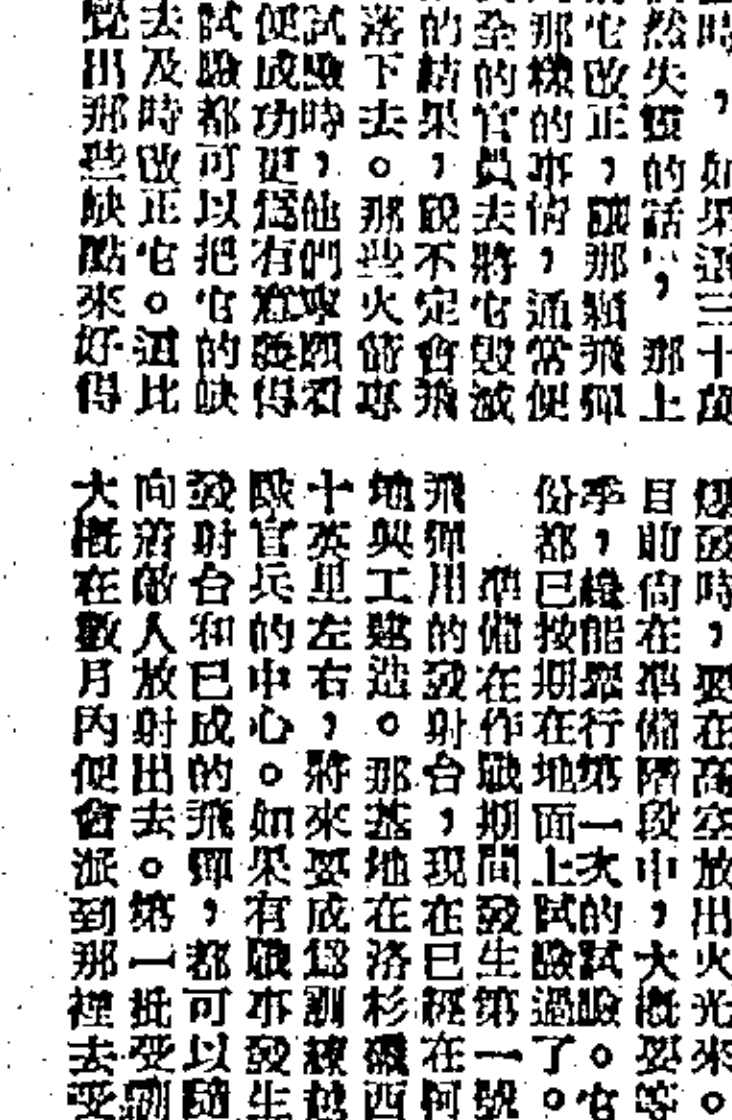 時,如果這三十萬
然失靈的話,那上
它改正,讓那顆飛彈
那樣的事情,通常便
全的官員去將它毀滅
的結果,說不定會飛
落下去。那些火箭專
試驗時,他們寧願看
便成功更為有意義得
試驗都可以把它的缺
去及時改正它。這比
覺出那些缺點來好得
爆發時,要在高空放出火光來。
目前尚在準備階段中,大概要等
季,纔能舉行第一次的試驗。它
份都已按期在地面上試驗過了。
準備在作戰期間發生第一號
飛彈用的發射台,現在已經在柯
地興工建造。那基地在洛杉磯西
十英里左右,將來要成為訓練
隊官兵的中心。如果有戰事發生
發射台和已成的飛彈,都可以隨
向着敵人放射出去。第一批受訓
大概在數月內便會派到那裡去受